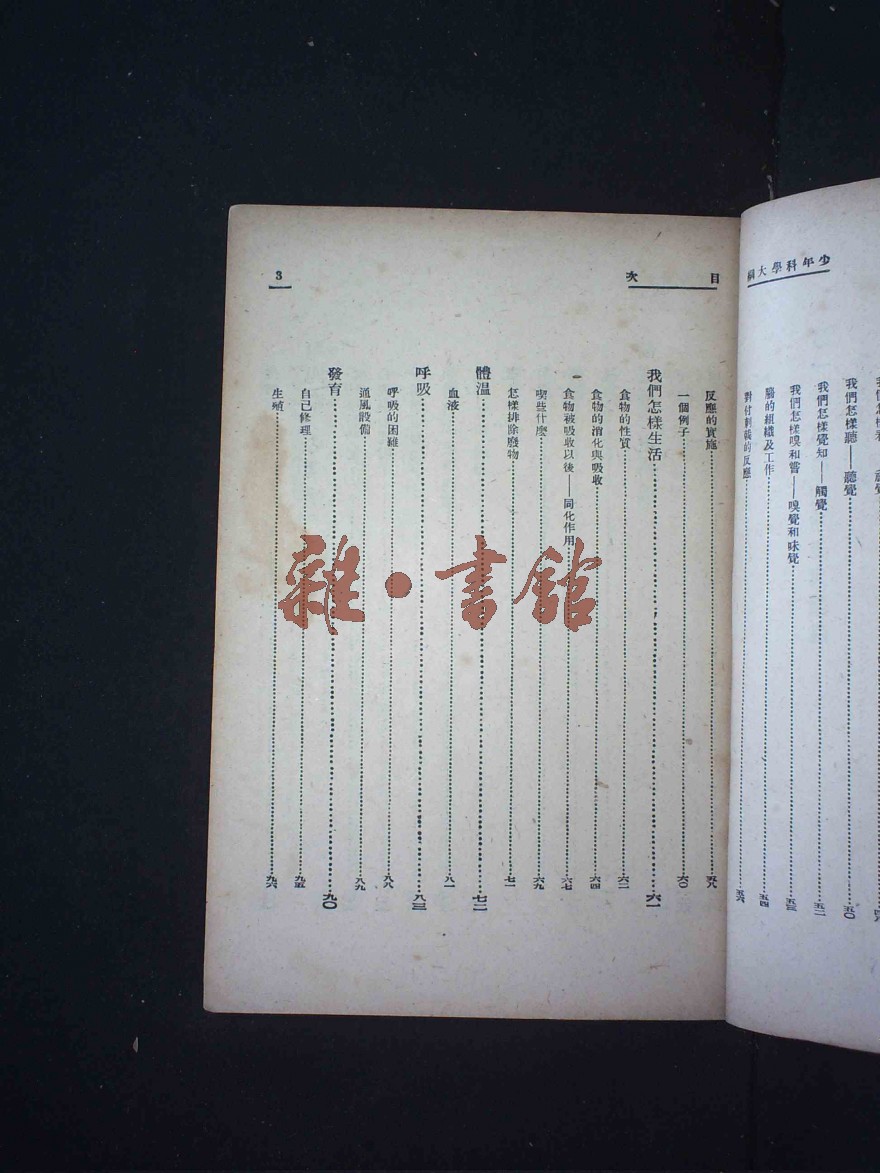 少年科學大綱
我們怎樣聽——聽覺……五〇
我們怎樣覺知——觸覺……五二
我們怎樣嗅和嘗——嗅覺和味覺……五三
腦的組織及工作……五四
對付刺戟的反應……五六
目次
3
反應的實施……五八
一個例子……六〇
我們怎樣生活……六一
食物的性質……六二
食物的消化與吸收……六四
食物被吸收以後——同化作用……六七
喫些什麼……六九
怎樣排除廢物……七一
體温……七二
血液……八一
呼吸……八三
呼吸的困難……八八
通風設備……八九
發育……九〇
自己修理……九五
生殖……九六
雜·書館